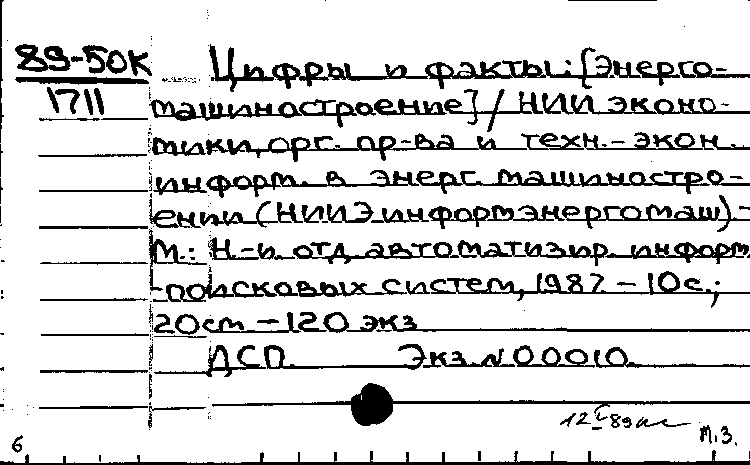 89-50К
1711
Цифры и факты: [Энерго-
машиностроение] / НИИ эконо-
мики, орг. пр-ва и техн.-экон.
информ. в энерг. машиностро-
ении (НИИЭинформэнергомаш) -
М.: Н.-и. отд. автоматизир. информ
-поисковых систем, 1987. - 10с.;
20см - 120 экз
ДСП. Экз. N 00010.
12 I 89
М.З.
6